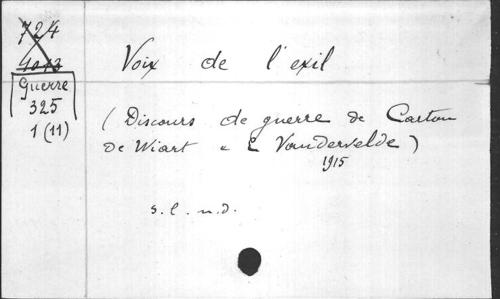 724
4013
Guerre
325
1 (11)
Voix de l'exil
(Discours de guerre de Carton
de Wiart & E Vandervelde)
1915
s.l.n.d.